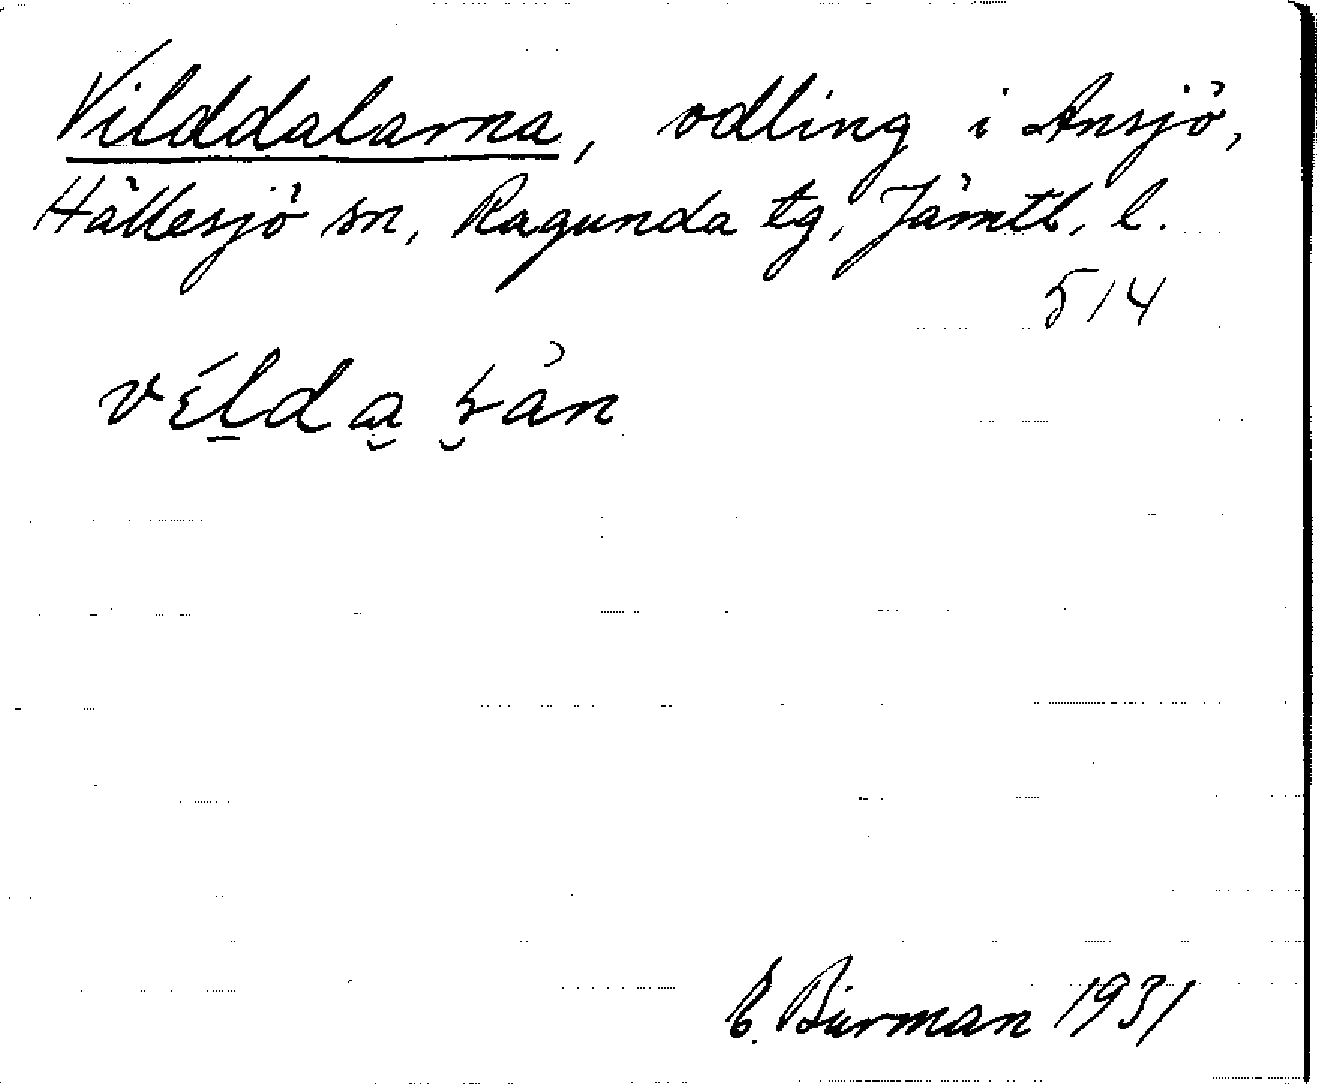 Vilddalarna, odling i Ansjö,
Hällesjö sn, Ragunda tg, Jämtl. l.
514
E. Burman 1931